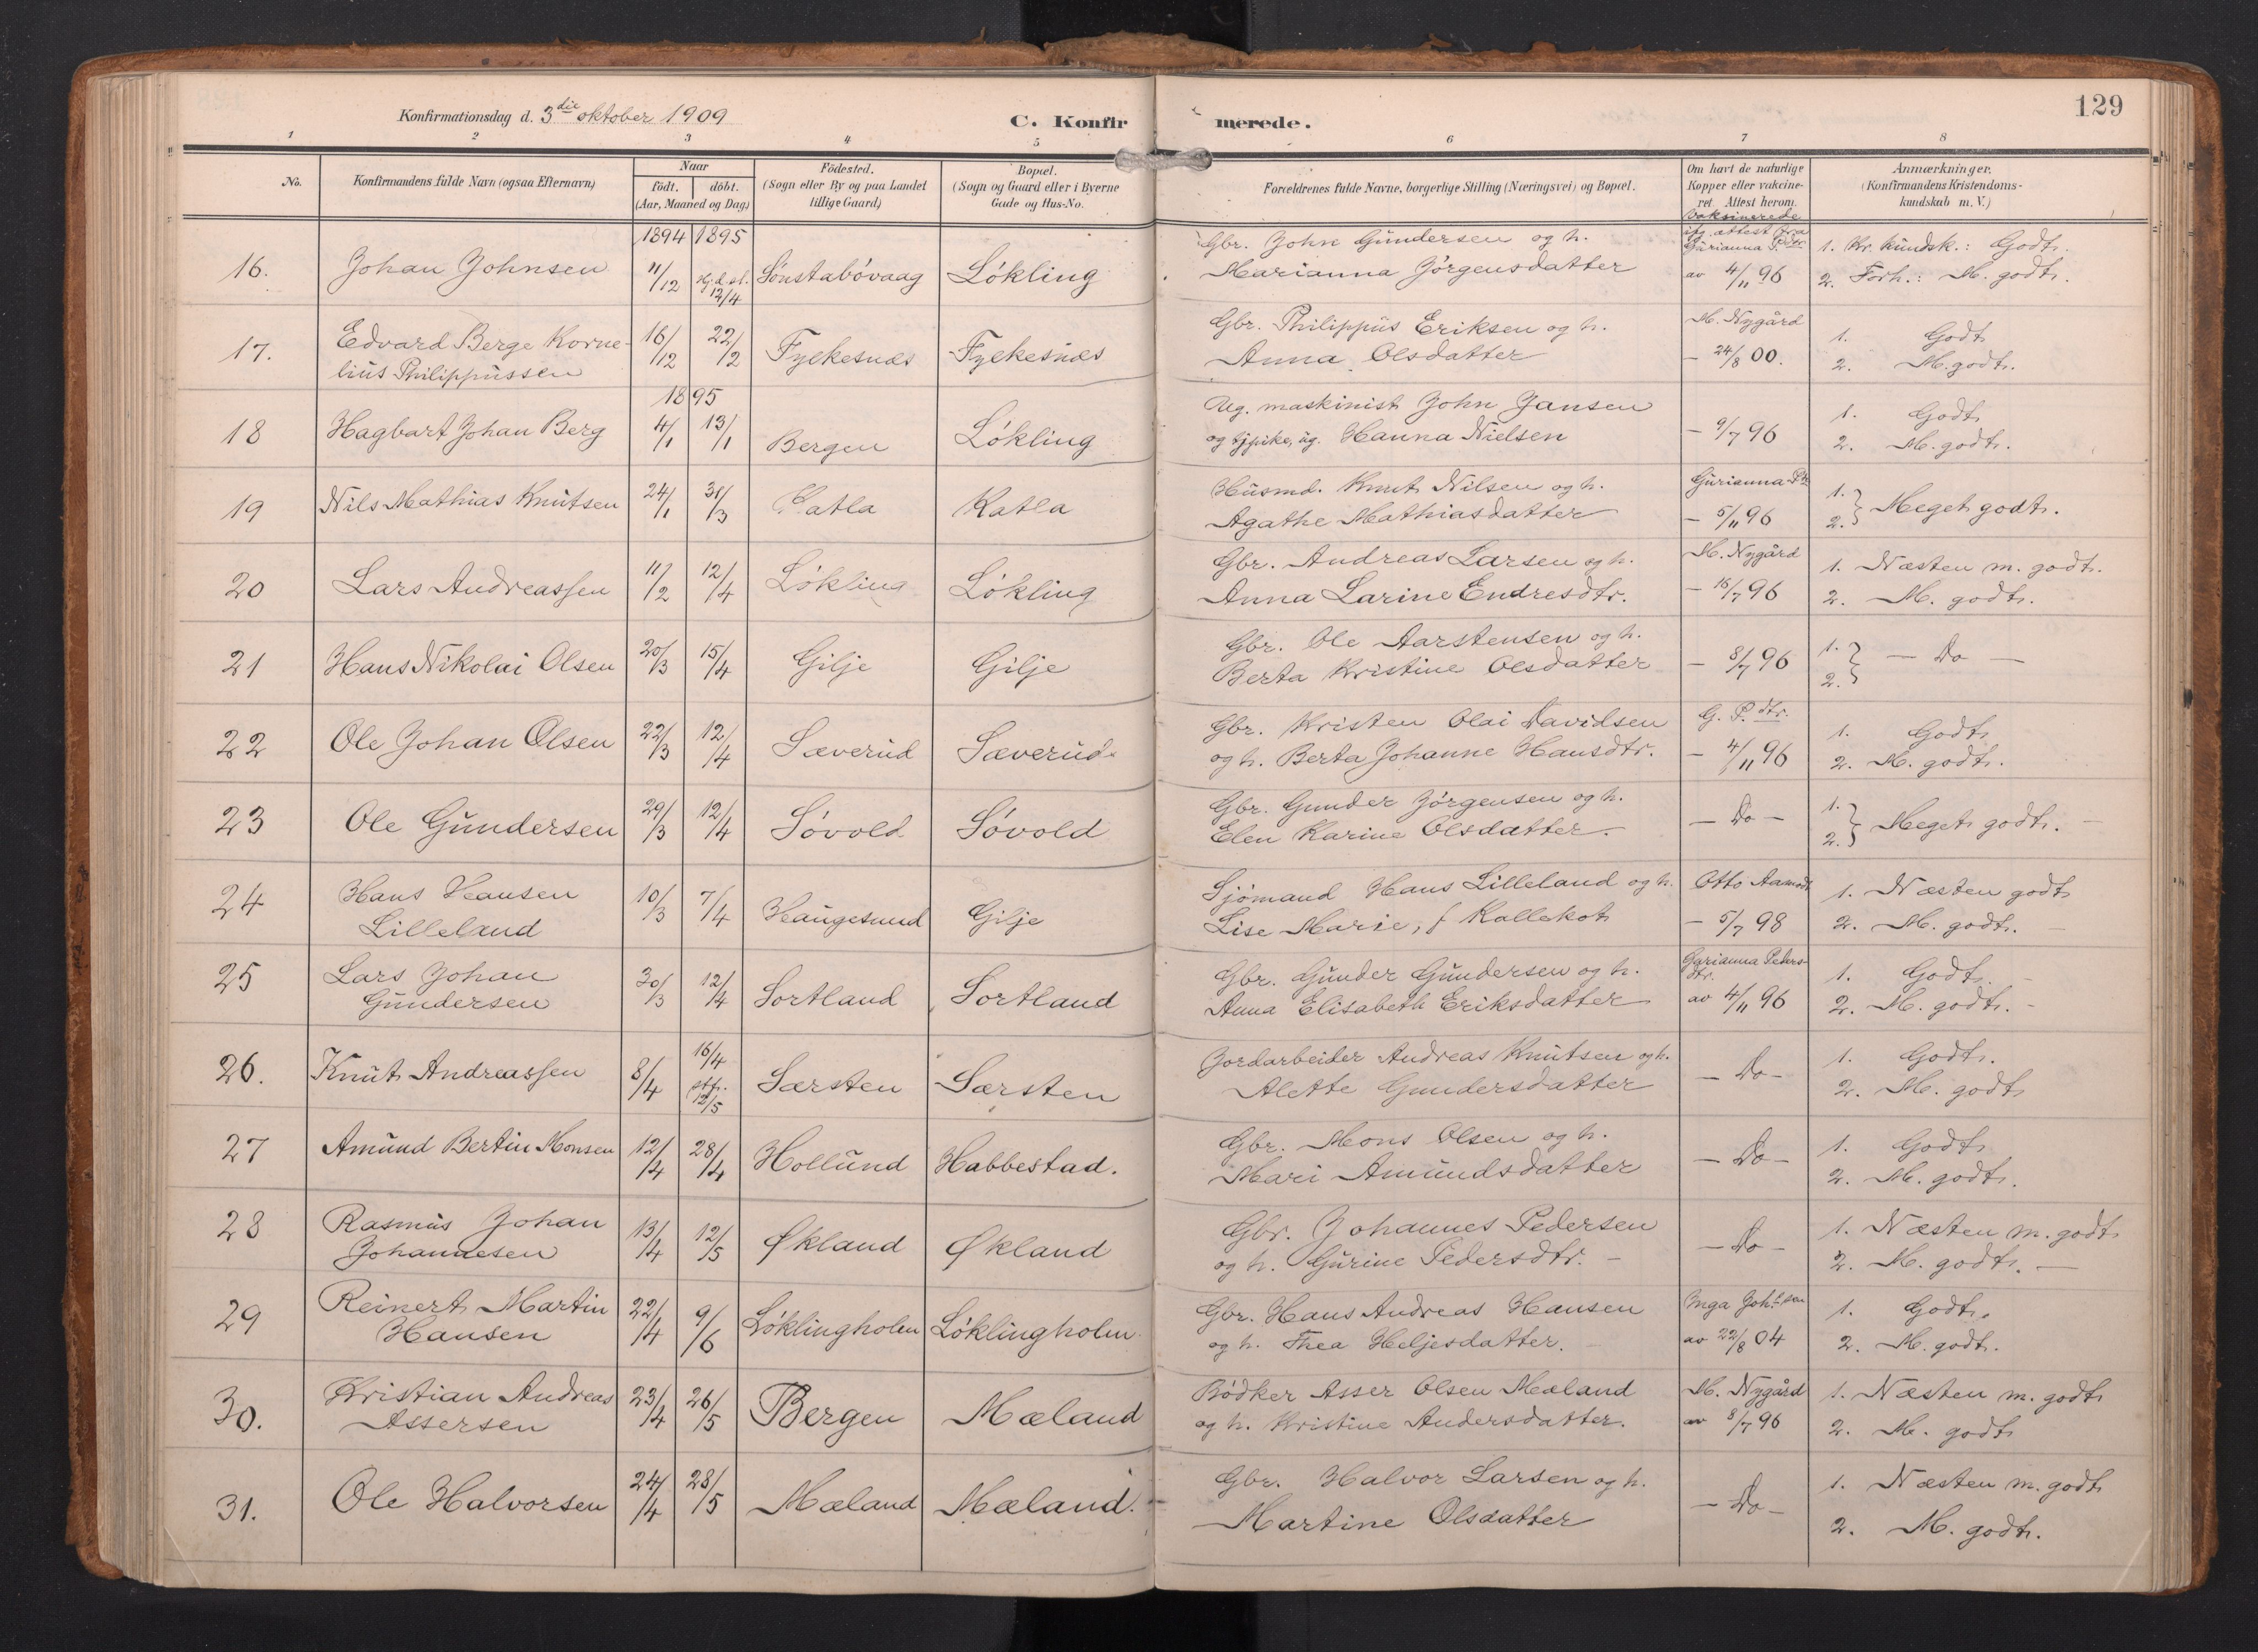 Konfirmationsdag d. 3die oktober 1909
C. Konfir merede.
129
1 2 3 4 5 6 7 8
No.
Konfirmandens fulde Navn (ogsaa Efternavn)
Naar
födt. döbt.
(Aar, Maaned og Dag)
Födested.
(Sogn eller By og paa Landet
tillige Gaard)
Bopæl.
(Sogn og Gaard eller i Byerne
Gade og Hus-No.
Forældrenes fulde Navne, borgerlige Stilling (Næringsvei) og Bopæl.
Om havt de naturlige
Kopper eller vakcine-
ret. Attest herom.
Anmærkninger.
(Konfirmandens Kristendoms-
kundskab m. V.)
Vaksinerede
ifg. attest fra
1894 1895
16. Johan Johnsen 11/12 hj.d. st. 12/4 Sönstabövaag Lökling Gbr. John Gundersen og h. Marianna Jörgensdatter Gurianna P. dtr. av 4/11 96 1. Kr. kundsk.: Godt. 2. Forh.: M. godt.
17. Edvard Berge Korne-
lius Philippussen 16/12 22/2 Fylkesnæs Fylkesnæs Gbr. Philippus Eriksen og h. Anna Olsdatter M. Nygård – 24/8 00. 1. Godt 2. M. godt.
1895
18 Hagbart Johan Berg 4/1 13/1 Bergen Lökling Ug. maskinist John Jansen og tjpike, ug. Hanna Nielsen – 9/7 96 1. Godt 2. M. godt.
19 Nils Mathias Knutsen 24/1 31/3 Katla Katla Husmd. Knut Nilsen og h. Agathe Mathiasdatter Gurianna P. – 5/11 96 1. 2. Meget godt.
20 Lars Andreassen 11/2 12/4 Lökling Lökling Gbr. Andreas Larsen og h. Anna Larine Endresdtr. M. Nygård – 16/7 96 1. Næsten m. godt. 2. M. godt.
21 Hans Nikolai Olsen 20/3 15/4 Gilje Gilje Gbr. Ole Aarstensen og h. Berta Kristine Olsdatter – 8/7 96 1. 2. – Do –
22 Ole Johan Olsen 22/3 12/4 Sæverud Sæverud Gbr. Kristen Olai Davidsen og h. Berta Johanne Hansdtr. G. P. dtr. – 4/11 96 1. Godt 2. M. godt.
23 Ole Gundersen 29/3 12/4 Sövold Sövold Gbr. Gunder Jörgensen og h. Elen Karine Olsdatter. – Do – 1. 2. Meget godt. –
24 Hans Hansen
Lilleland 10/3 7/4 Haugesund Gilje Sjömand Hans Lilleland og h. Lise Marie, f. Kallekot Otto Aamodt – 5/7 98 1. Næsten godt 2. M. godt. –
25 Lars Johan
Gundersen 30/3 12/4 Sortland Sortland Gbr. Gunder Gundersen og h. Anna Elisabeth Eriksdatter Gurianna Peders-
dtr. av 4/11 96 1. Godt. – 2. M. godt. –
26. Knut Andreassen 8/4 16/4 stf. 12/5 Særsten Særsten Jordarbeider Andreas Knutsen og h. Alette Gundersdatter – Do – 1. Godt. 2. M. godt
27 Amund Bertin Monsen 12/4 28/4 Hollund Habbestad. Gbr. Mons Olsen og h. Mari Amundsdatter – Do – 1. Godt 2. M. godt.
28 Rasmus Johan
Johannesen 13/4 12/5 Økland Økland Gbr. Johannes Pedersen og h. Gurine Pedersdtr. – – Do – 1. Næsten m. godt 2. M. godt. –
29 Reinert Martin
Hansen 22/4 9/6 Löklingholm Löklingholm Gbr. Hans Andreas Hansen og h. Thea Heljesdatter. Inga Joh.sen av 22/8 04 1. Godt. 2. M. godt.
30. Kristian Andreas
Assersen 23/4 26/5 Bergen Mæland Bödker Asser Olsen Mæland og h. Kristine Andersdatter. M. Nygård av 8/7 96 1. Næsten m. godt 2. M. godt
31. Ole Halvorsen 24/4 28/5 Mæland Mæland. Gbr. Halvor Larsen og h. Martine Olsdatter – Do – 1. Næsten m. godt 2. M. godt.